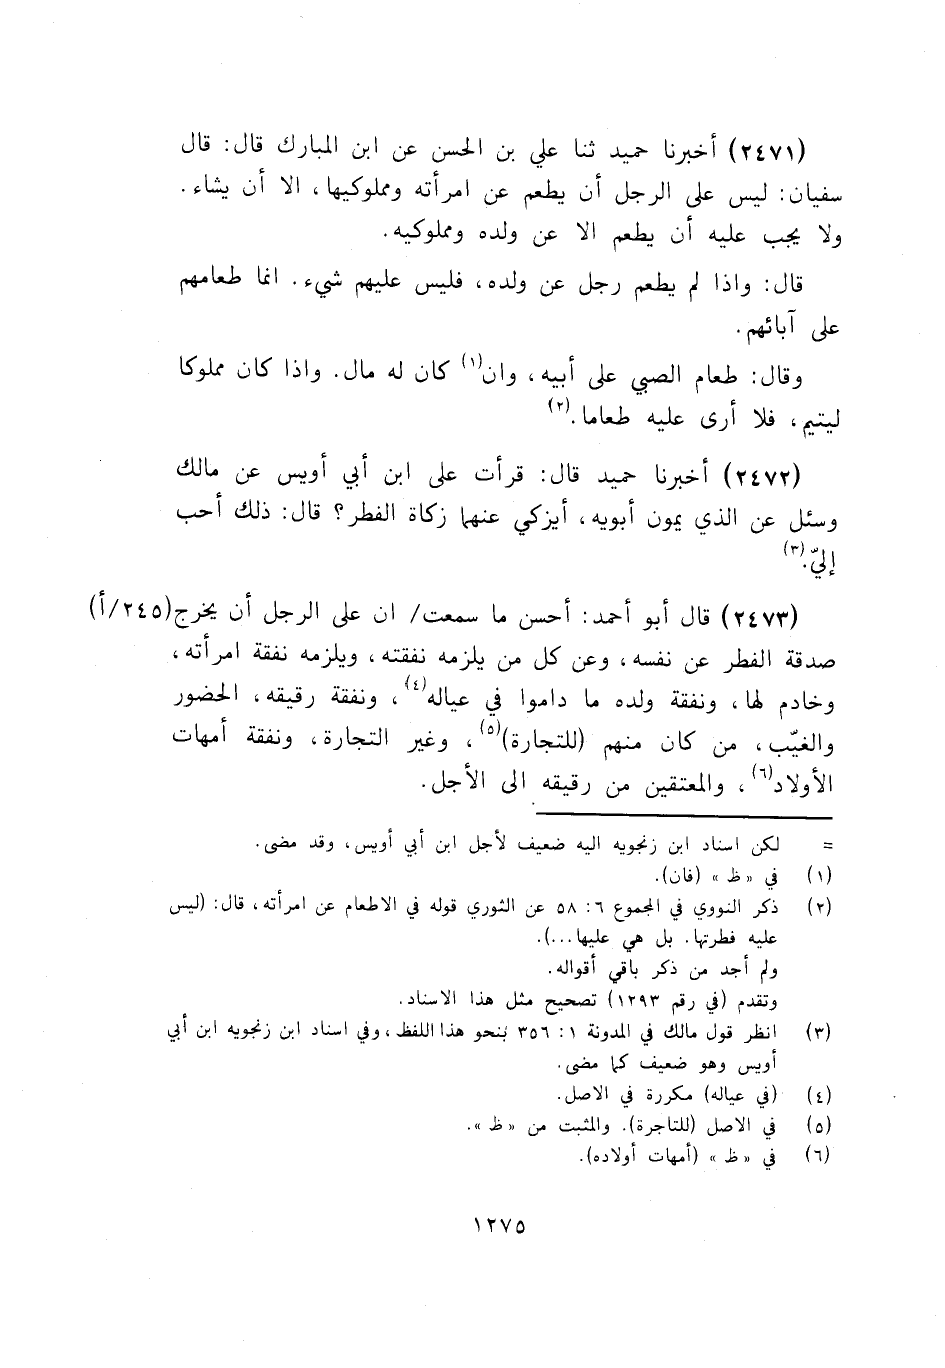 (٢٤٧١) أخبرنا حميد ثنا علي بن الحسن عن ابن المبارك قال: قال
سفيان: ليس على الرجل أن يطعم عن امرأته ومملوكيها، الا أن يشاء.
ولا يجب عليه أن يطعم الا عن ولده ومملوكيه.
قال: واذا لم يطعم رجل عن ولده، فليس عليهم شيء. انما طعامهم
على آبائهم.
وقال: طعام الصبي على أبيه، وان(١) كان له مال. واذا كان مملوكا
ليتيم، فلا أرى عليه طعاما.(٢)
(٢٤٧٢) أخبرنا حميد قال: قرأت على ابن أبي أويس عن مالك
وسئل عن الذي يمون أبويه، أيزكي عنهما زكاة الفطر؟ قال: ذلك أحب
إليّ.(٣)
(٢٤٧٣) قال أبو أحمد: أحسن ما سمعت/ ان على الرجل أن يخرج(٢٤٥/أ)
صدقة الفطر عن نفسه، وعن كل من يلزمه نفقته، ويلزمه نفقة امرأته،
وخادم لها، ونفقة ولده ما داموا في عياله(٤)، ونفقة رقيقه، الحضور
والغيّب، من كان منهم (للتجارة)(٥)، وغير التجارة، ونفقة أمهات
الأولاد(٦)، والمعتقين من رقيقه الى الأجل.
= لكن اسناد ابن زنجويه اليه ضعيف لأجل ابن أبي أويس، وقد مضى.
(١) في «ظ» (فان).
(٢) ذكر النووي في المجموع ٦: ٥٨ عن الثوري قوله في الاطعام عن امرأته، قال: (ليس
عليه فطرتها. بل هي عليها...).
ولم أجد من ذكر باقي أقواله.
وتقدم (في رقم ١٢٩٣) تصحيح مثل هذا الاسناد.
(٣) انظر قول مالك في المدونة ١: ٣٥٦ بنحو هذا اللفظ، وفي اسناد ابن زنجويه ابن أبي
أويس وهو ضعيف كما مضى.
(٤) (في عياله) مكررة في الاصل.
(٥) في الاصل (للتاجرة). والمثبت من «ظ».
(٦) في «ظ» (أمهات أولاده).
١٢٧٥